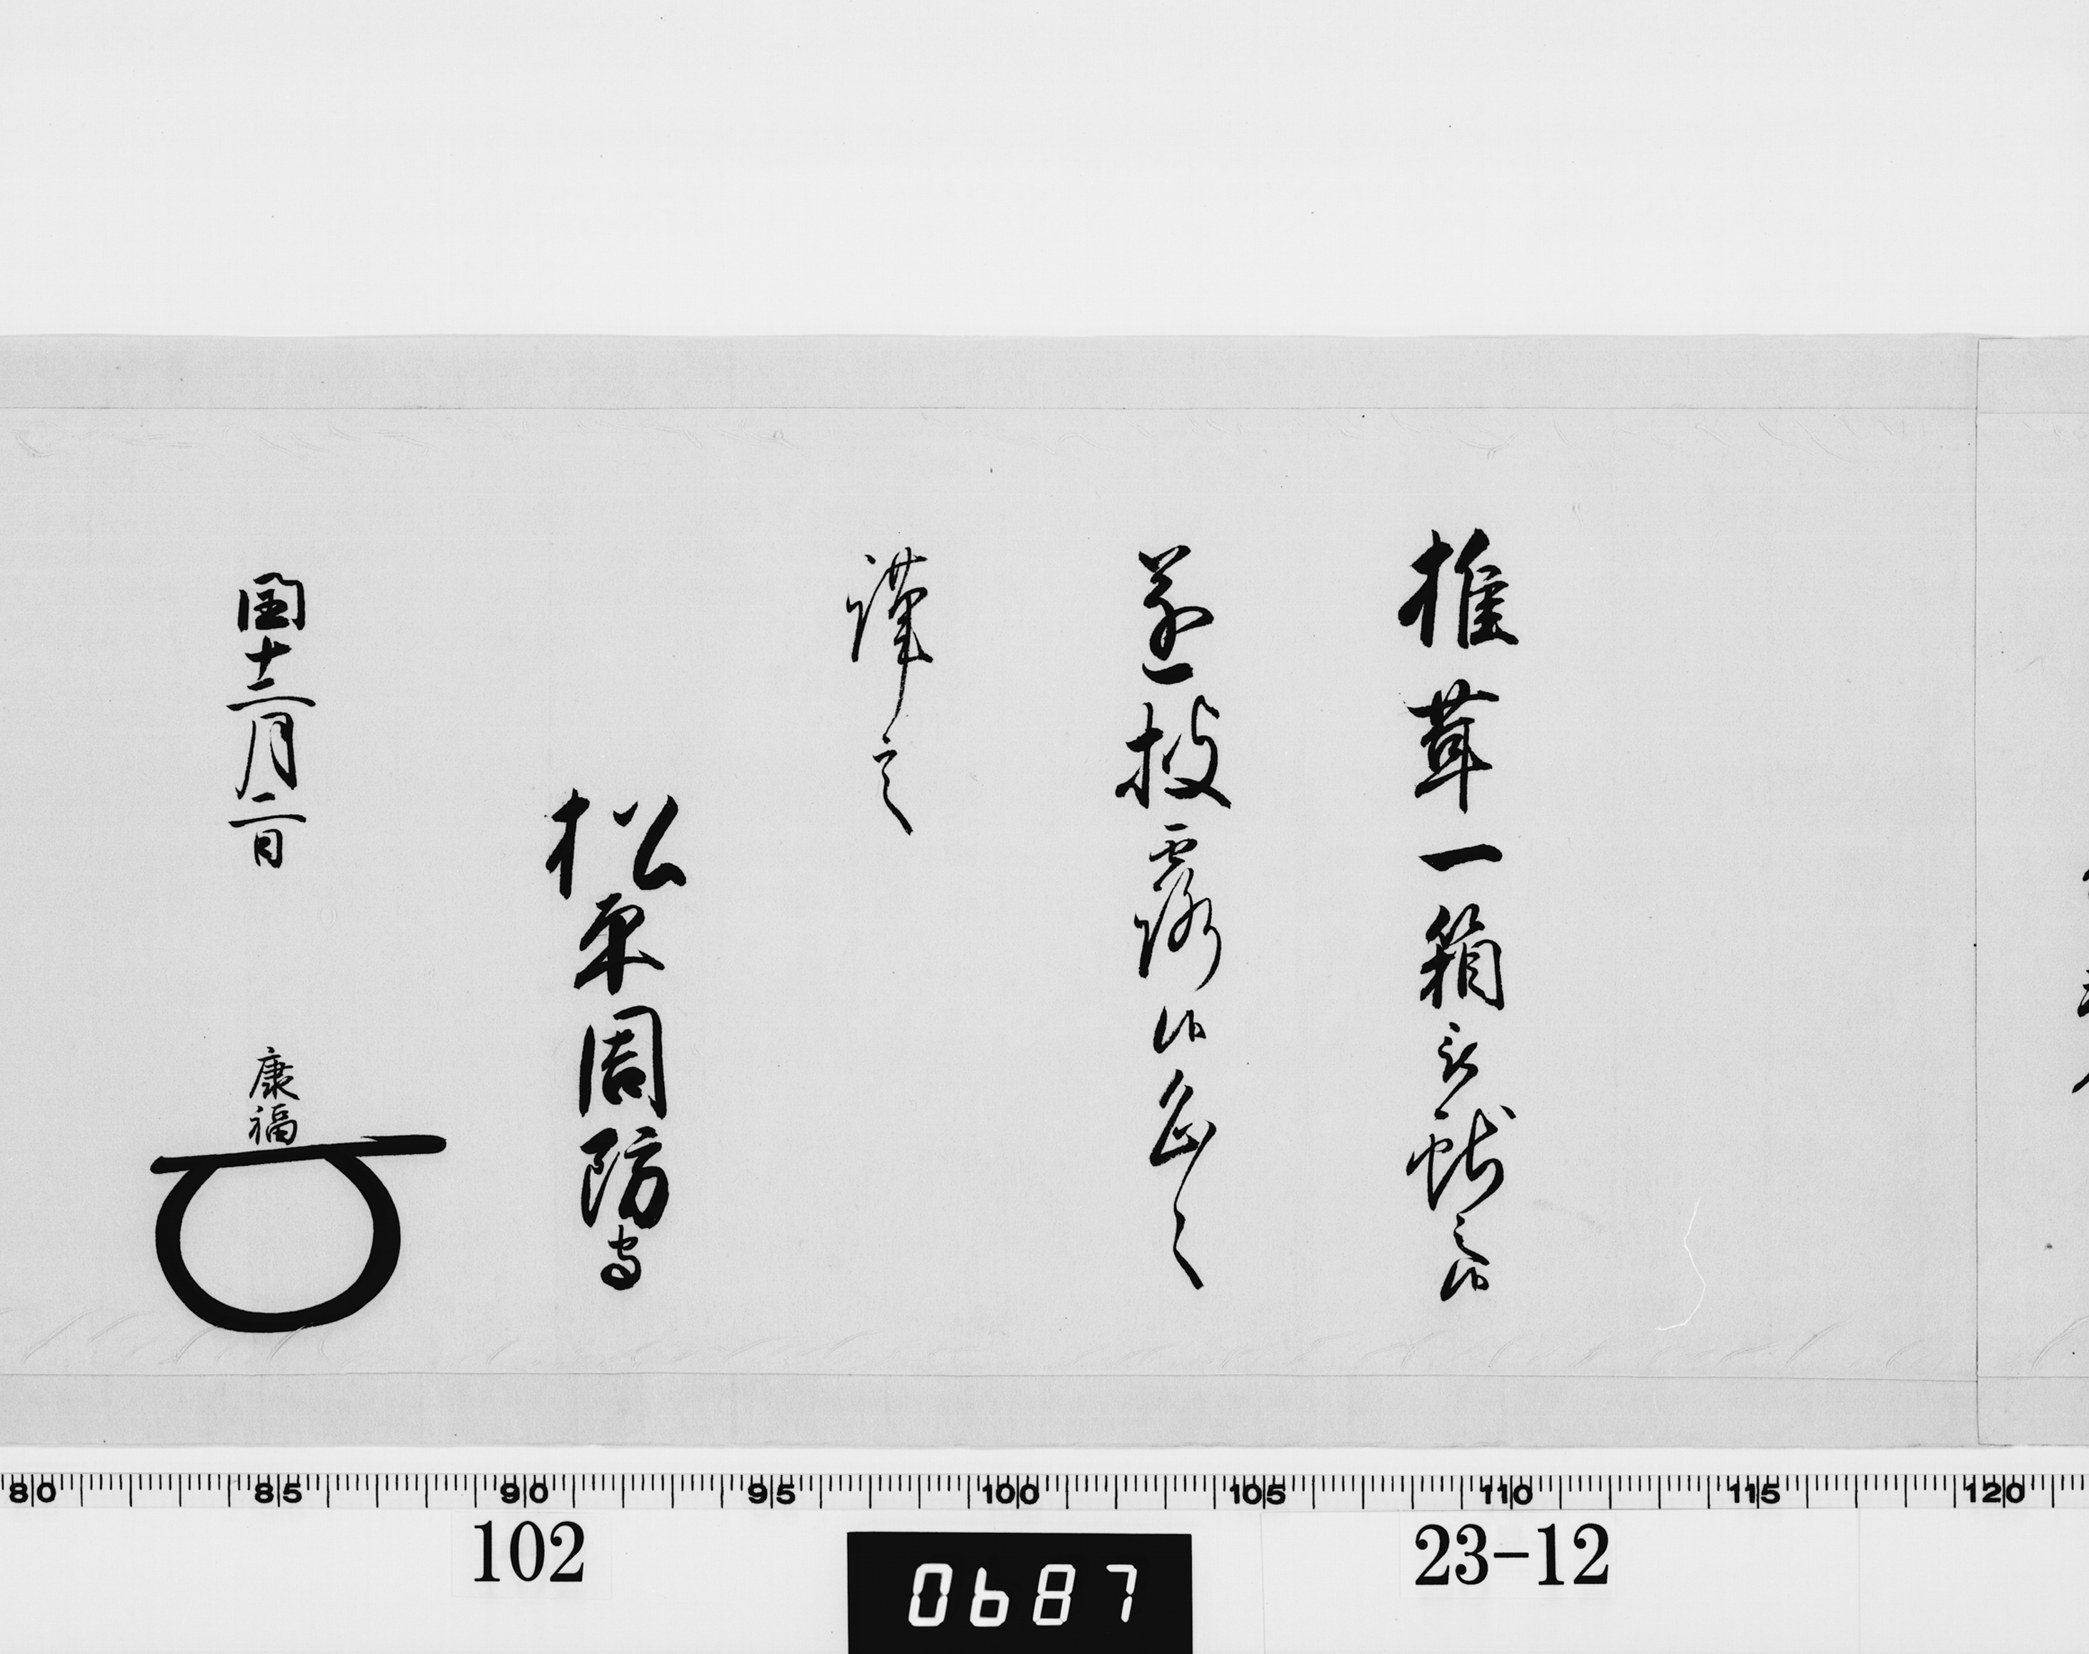 椎茸一箱被献之候
遂披露候処之
謹言
松平周防守
閏十二月二日
康福
80 85 90 95 100 105 110 115 120
102
0687
23-12